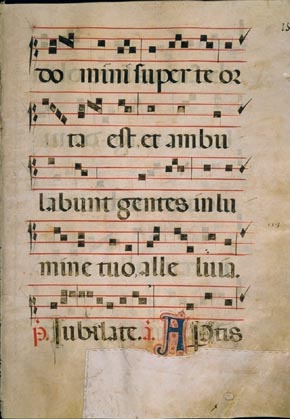 do mini super te or
ta est et ambu
labunt gentes in lu
mine tuo, alle luia.
p. Jubilate. a. A